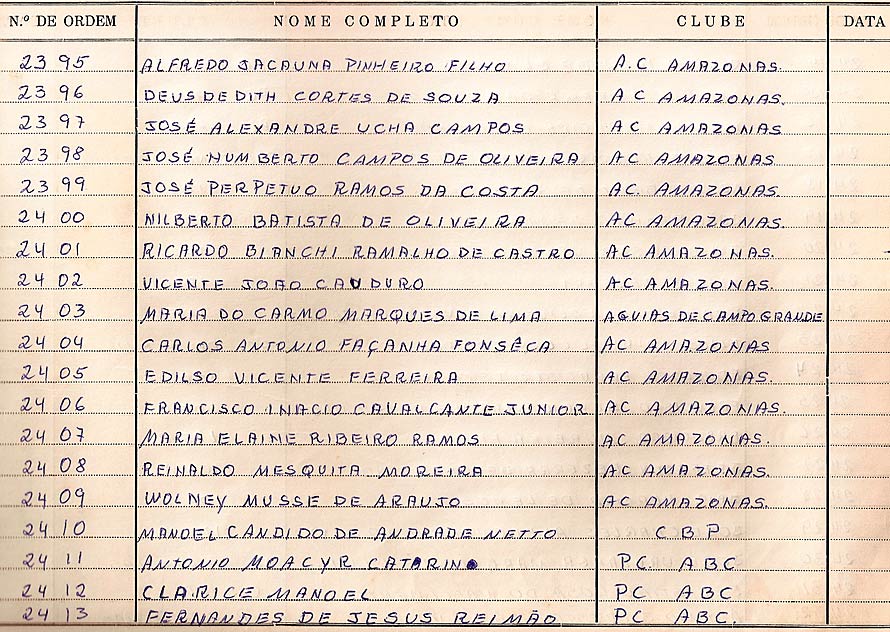 N.º DE ORDEM NOME COMPLETO CLUBE DATA
23 95 ALFREDO JACAUNA PINHEIRO FILHO A.C AMAZONAS.
23 96 DEUSDEDITH CORTES DE SOUZA A C AMAZONAS.
23 97 JOSÉ ALEXANDRE UCHA CAMPOS AC AMAZONAS
23 98 JOSÉ HUMBERTO CAMPOS DE OLIVEIRA AC AMAZONAS
23 99 JOSÉ PERPETUO RAMOS DA COSTA AC. AMAZONAS.
24 00 NILBERTO BATISTA DE OLIVEIRA AC AMAZONAS.
24 01 RICARDO BIANCHI RAMALHO DE CASTRO AC AMAZONAS.
24 02 VICENTE JOAO CAUDURO AC AMAZONAS.
24 03 MARIA DO CARMO MARQUES DE LIMA AGUIAS DE CAMPO GRANDE
24 04 CARLOS ANTONIO FAÇANHA FONSÊCA AC AMAZONAS
24 05 EDILSO VICENTE FERREIRA AC AMAZONAS.
24 06 FRANCISCO INACIO CAVALCANTE JUNIOR AC AMAZONAS.
24 07 MARIA ELAINE RIBEIRO RAMOS AC AMAZONAS.
24 08 REINALDO MESQUITA MOREIRA AC AMAZONAS.
24 09 WOLNEY MUSSE DE ARAUJO AC AMAZONAS.
24 10 MANOEL CANDIDO DE ANDRADE NETTO C B P
24 11 ANTONIO MOACYR CATARINO PC. ABC
24 12 CLARICE MANOEL PC ABC
24 13 FERNANDES DE JESUS REIMÃO PC ABC.